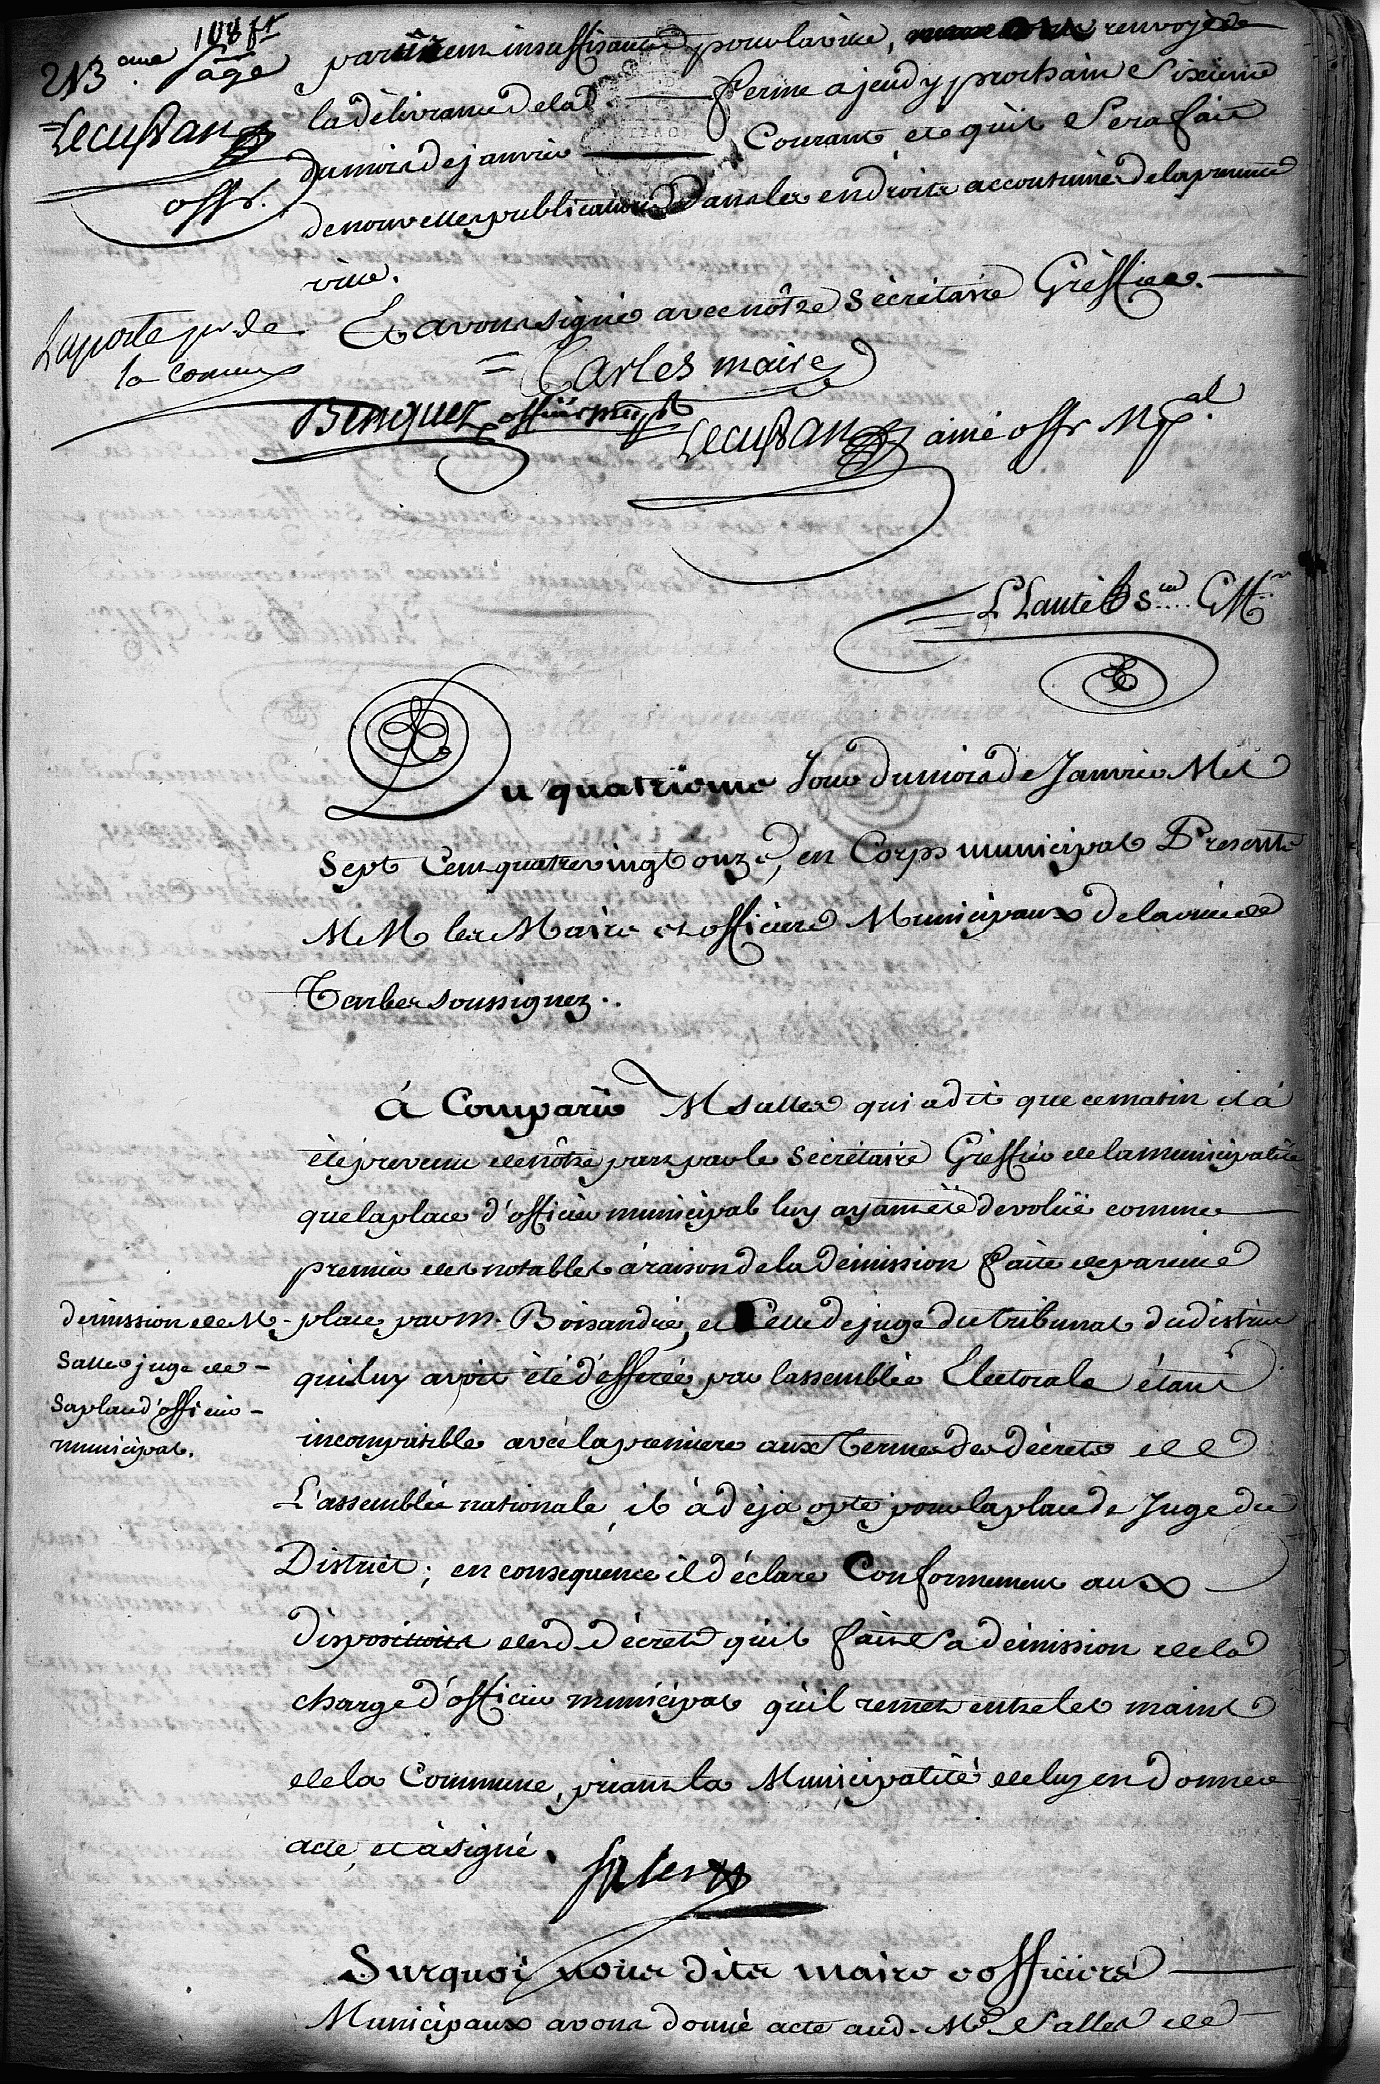 108 fr
213 eme page
Lecussan
offr.
paru̇rent insuffisantes pour la ville, renvoyé
la délivrance de lad. ferme a jeudy prochain sixieme
du mois de janvier courant et qu'il sera fait
de nouvelles publications dans les endroits accoutumés de la presente
ville.
Et avons signé avec nôtre Sécrétaire Gréffier.
Laporte pr. de
la commune
= Tarbes maire
Benquez officier mupl
Lecussan ainé offr Mpal
L Lanté Sre Gffr
Du quatrieme Jour du mois de Janvier Mil
Sept Cens quatre vingt onze, en Corps municipal Presents
MM les Maire et officiers Municipaux de la ville de
Tarbes soussignez..
à Comparu M Salles qui a dit que ce matin il à
été prevenu de nôtre part par le Sécrétaire Gréffier de la municipalité
que la place d'officier municipal luy ayant été devoluë comme
premier des notables à raison de la démission faite de pareille
démission de M.
Salles juge de
sa place d'officier
municipal.
place par M. Boisandré, et Celle de juge du tribunal du district
qui luy avoit été défferée par l'assemblée Electorale étant
incompatible avec la premiere aux Termes des décrets de
L'assemblée nationale, il à déja opté pour la place de Juge du
District; en consequence il déclare Conformement aux
dispositions desd. décrets qu'il faint sa démission de la
charge d'officier municipal qu'il remet entre les mains
de la Commune, priant la Municipalité de luy en donner
acte, et à signé.
Salles
Surquoi nous dits maire et officiers
Municipaux avons donné acte aud. Mr Salles de